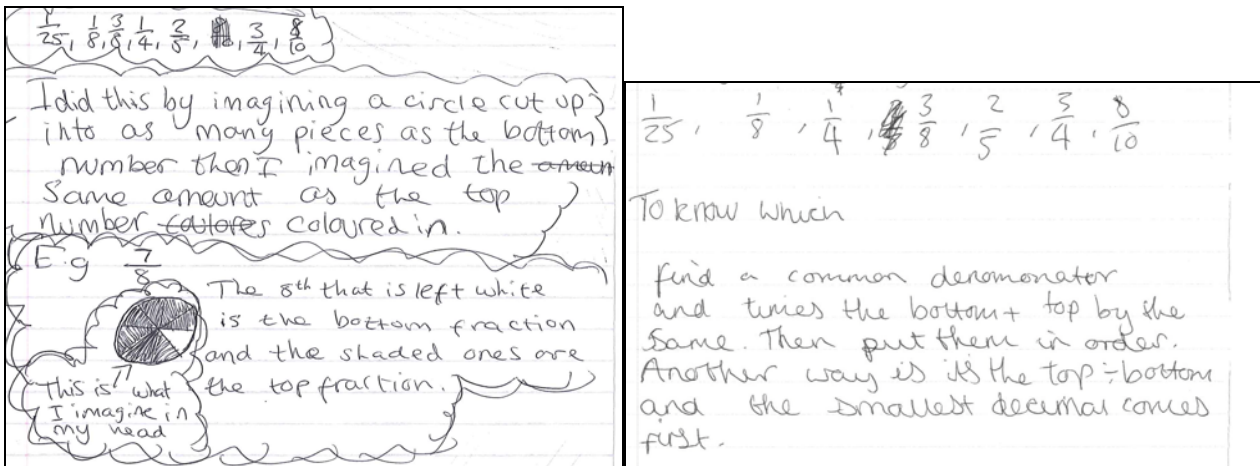 1/25, 1/8, 3/8, 1/4, 2/5, 3/4, 8/10
I did this by imagining a circle cut up
into as many pieces as the bottom
number then I imagined the
Same amount as the top
number coloured in.
E.g 7/8
The 8th that is left white
is the bottom fraction
and the shaded ones are
the top fraction.
This is what
I imagine in
my head
1/25, 1/8, 1/4, 3/8, 2/5, 3/4, 8/10
To know which
find a common denomonator
and times the bottom + top by the
same. Then put them in order.
Another way is its the top ÷ bottom
and the smallest decimal comes
first.